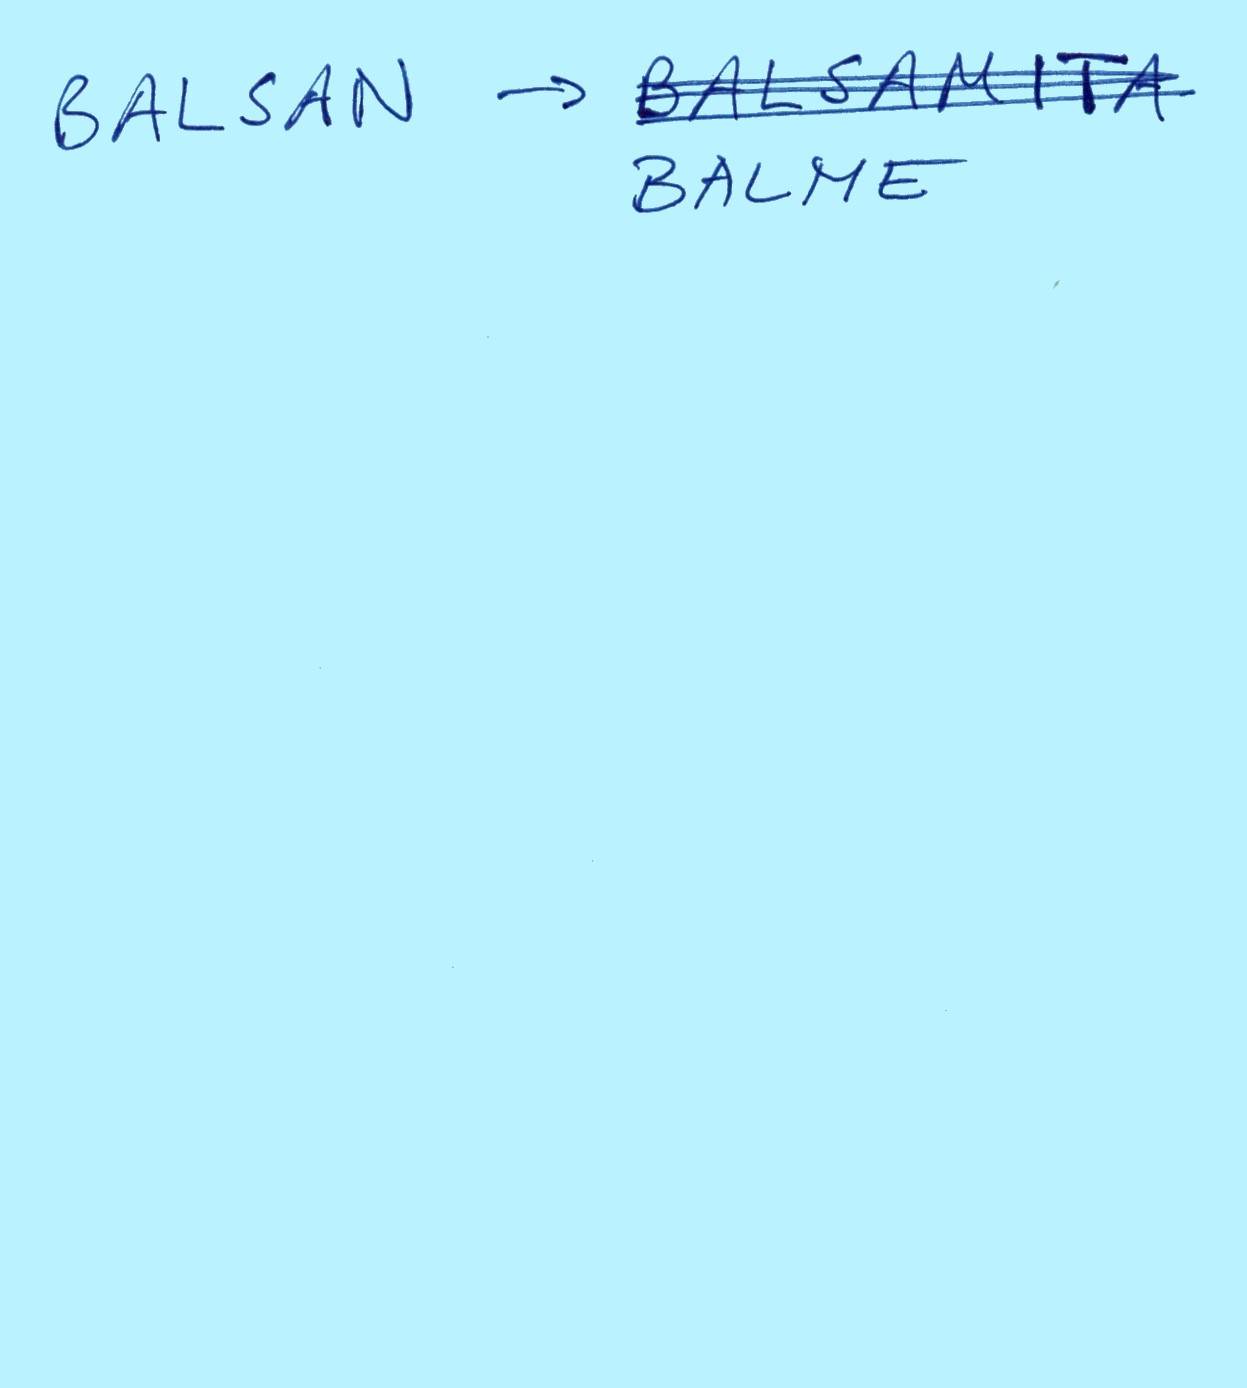 BALSAN → BALSAMITA
BALME